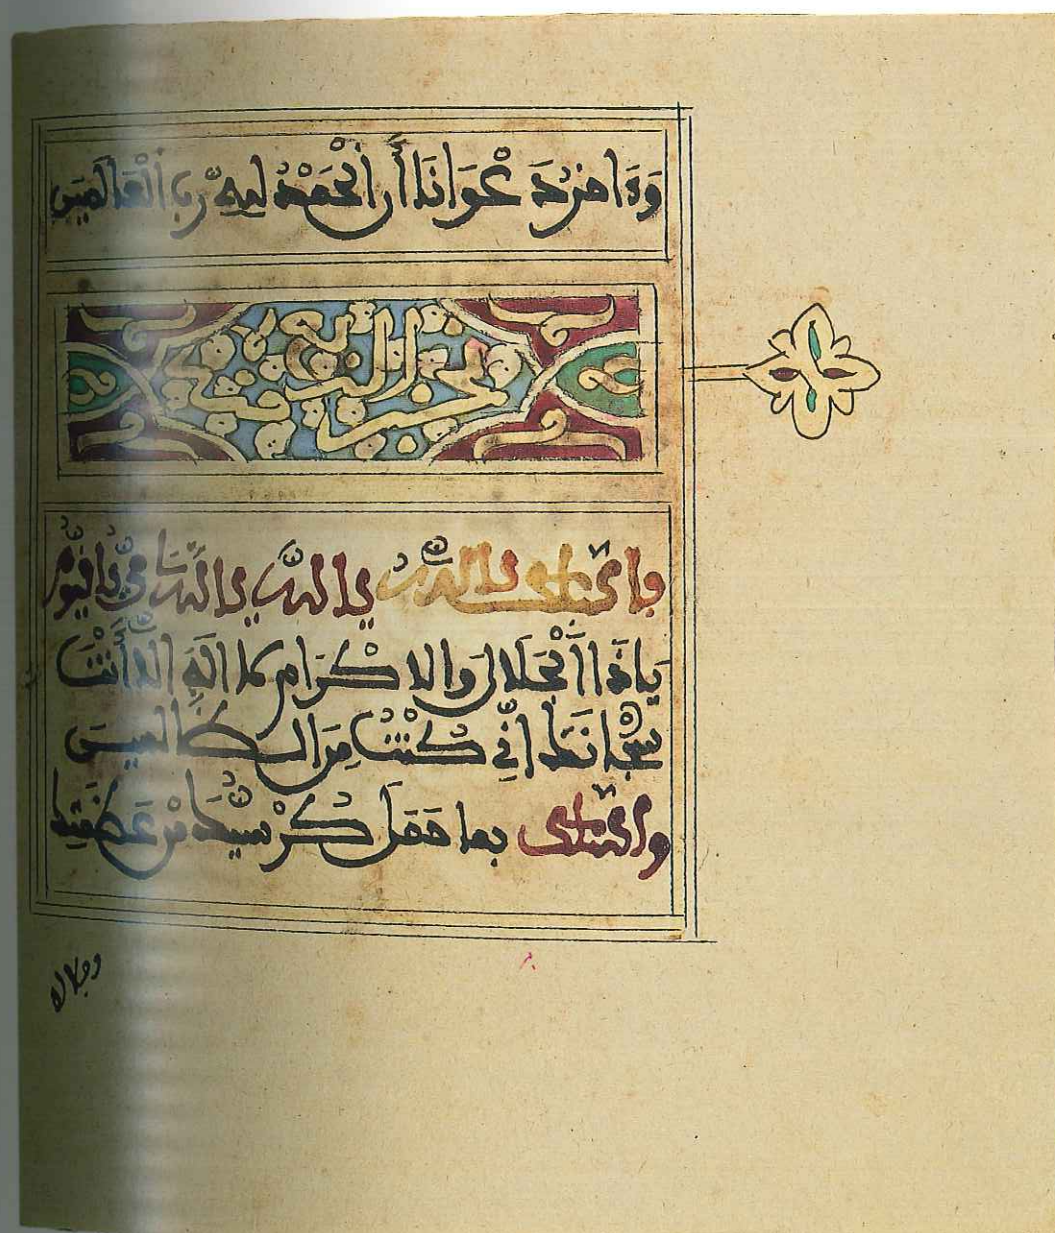 وَءَاخِرُ دَعْوَانَا أَنِ الْحَمْدُ لِلهِ رَبِّ الْعَالَمِينَ
وأسألك يا الله يا الله يا الله يا حي يا قيوم
يَا ذَا الْجَلَالِ وَالإِكْرَامِ لَا إِلَهَ إِلَّا أَنْتَ
سُبْحَانَكَ إِنِّي كُنْتُ مِنَ الظَّالِمِينَ
وأسألك بِمَا حَمَلَ كُرْسِيُّكَ مِنْ عَظَمَتِكَ
وجلالك